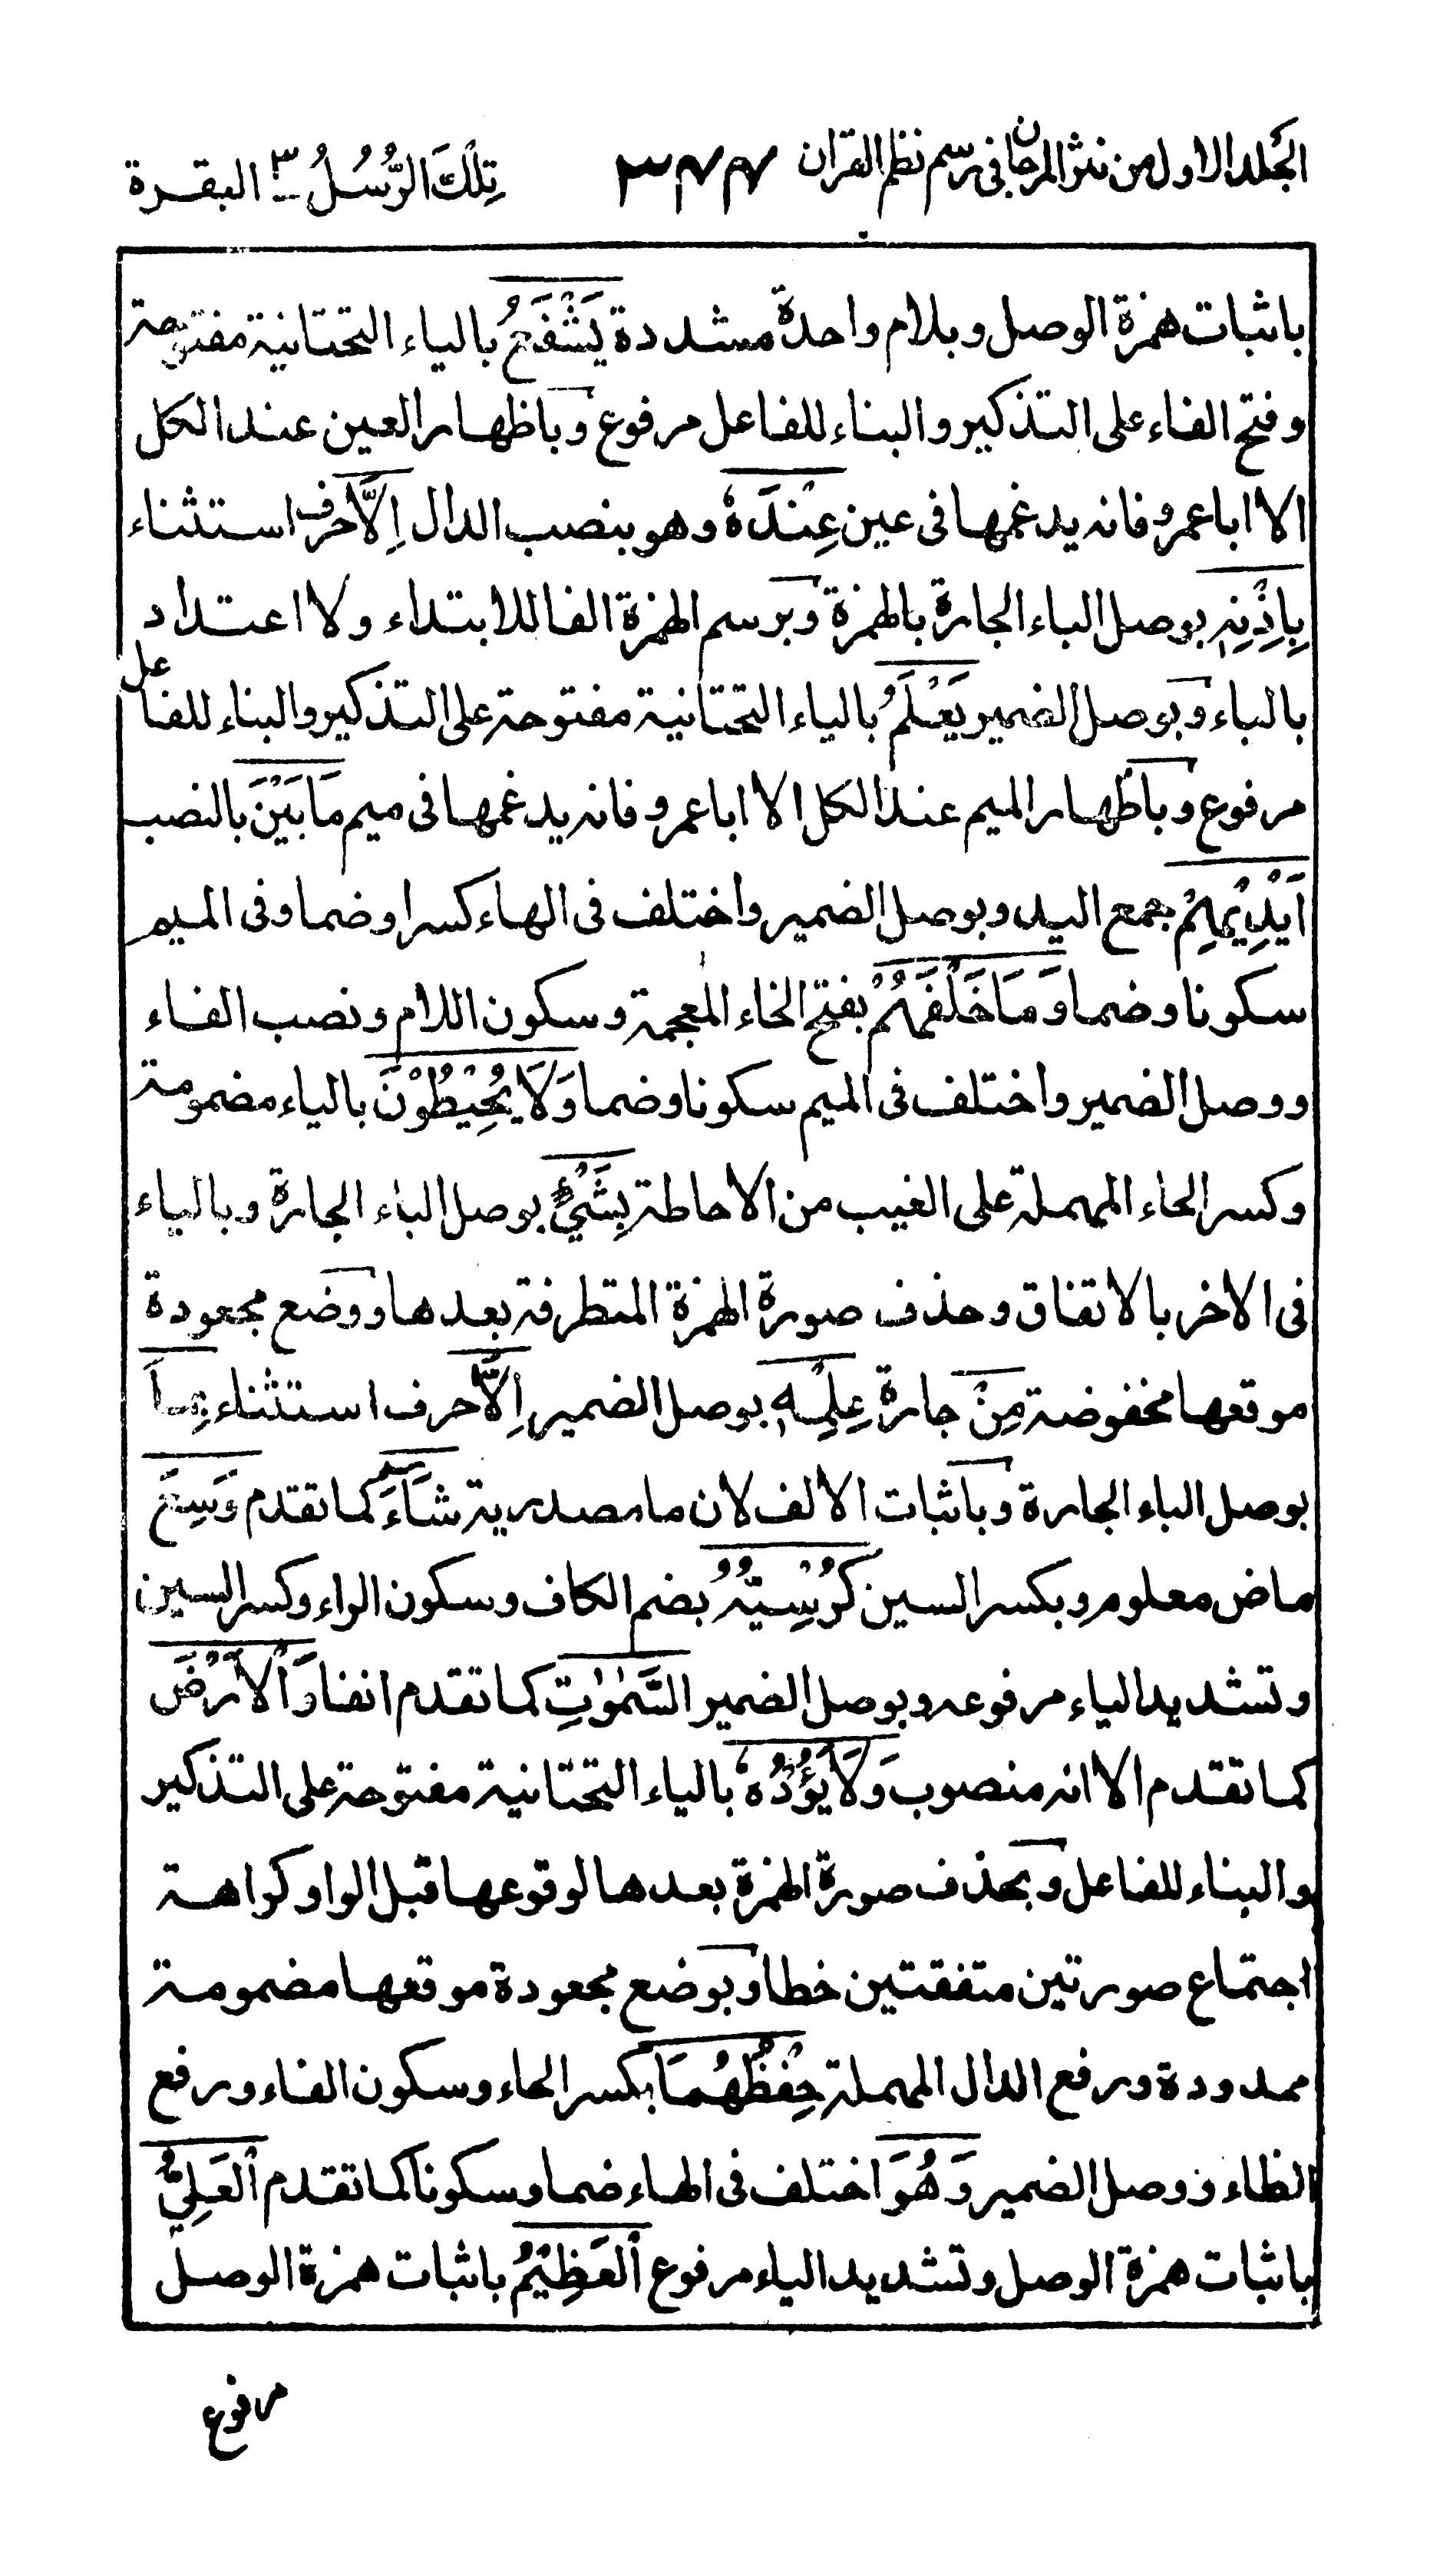 الجلد الاول من نثر المرجان فى رسم نظم القران ٣٤٤ تِلْكَ الرُّسُلُ ٣ البقرة
باثبات همزة الوصل وبلام واحدة مشددة يَشْفَعُ بالياء التحتانية مفتوحة
وفتح الفاء على التذكير والبناء للفاعل مرفوع وباظهار العين عند الكل
الا اباعمرو فانه يدغمها فى عين عِنْدَهٗ وهو بنصب الدال اِلَّا حرف استثناء
بِاِذْنِهٖ بوصل الباء الجارة بالهمزة وبرسم الهمزة الفا للابتداء ولا اعتداد
بالباء وبوصل الضمير يَعْلَمُ بالياء التحتانية مفتوحة على التذكير والبناء للفاعل
مرفوع وباظهار الميم عند الكل الا اباعمرو فانه يدغمها فى ميم مَا بَيْنَ بالنصب
اَيْدِيْهِمْ جمع اليد وبوصل الضمير واختلف فى الهاء كسرا وضما وفى الميم
سكونا وضما وَمَا خَلْفَهُمْ بفتح الخاء المعجمة وسكون اللام ونصب الفاء
ووصل الضمير واختلف فى الميم سكونا وضما وَلَا يُحِيْطُوْنَ بالياء مضمومة
وكسر الحاء المهملة على الغيب من الاحاطة بِشَيْءٍ بوصل الباء الجارة وبالياء
فى الاخر بالاتفاق وحذف صورة الهمزة المتطرفة بعدها ووضع مجعودة
موقعها مخفوضة مِنْ جارة عِلْمِهٖ بوصل الضمير اِلَّا حرف استثناء بِمَا
بوصل الباء الجارة وباثبات الالف لان ما مصدرية شَاءَ كما تقدم وَسِعَ
ماض معلوم وبكسر السين كُرْسِيُّهُ بضم الكاف وسكون الراء وكسر السين
وتشديد الياء مرفوعه وبوصل الضمير السَّمٰوٰتِ كما تقدم انفا وَالْاَرْضَ
كما تقدم الا انه منصوب وَلَا يَؤُدُهٗ بالياء التحتانية مفتوحة على التذكير
والبناء للفاعل وبحذف صورة الهمزة بعدها لوقوعها قبل الواو كراهة
اجتماع صورتين متفقتين خطا وبوضع مجعودة موقعها مضمومة
ممدودة ورفع الدال المهملة حِفْظُهُمَا بكسر الحاء وسكون الفاء ورفع
الظاء ووصل الضمير وَهُوَ اختلف فى الهاء ضما وسكونا كما تقدم الْعَلِيُّ
باثبات همزة الوصل وتشديد الياء مرفوع الْعَظِيْمُ باثبات همزة الوصل
مرفوع